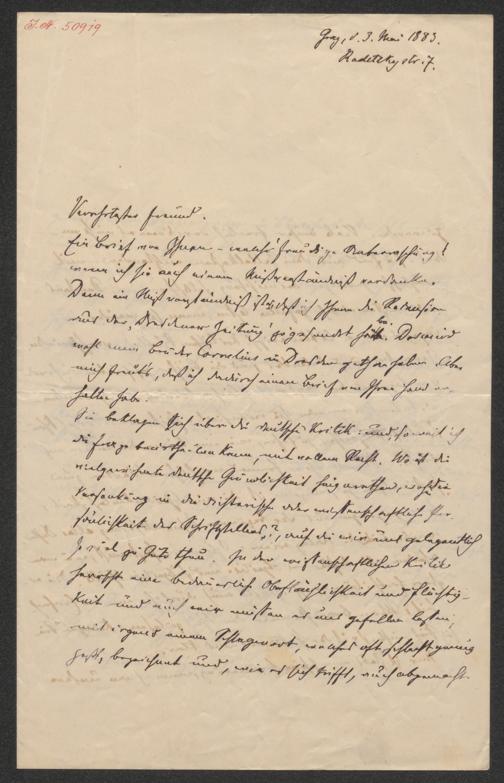 I.N. 50919
Graz, d. 3. Mai 1883.
Radetzkystr. 7.
Verehrtester Freund.
Ein Brief von Ihnen – welche freudige Ueberraschung!
wenn ich sie auch einem Mißverständniß verdanke.
Denn ein Mißverständniß ist's, daß ich Ihnen die Recension
aus der „Dresdener Zeitung“ zugesendet Das wird
wohl mein Bruder Cornelius in Dresden gethan haben. Aber
mich freut's, daß ich dadurch einen Brief von Ihrer Hand er-
halten habe.
Sie beklagen Sich über die deutsche Kritik: und, soweit ich
die Frage beurtheilen kann, mit vollem Recht. Wo ist die
vielgerühmte deutsche Gründlichkeit hingerathen, wo die
Versenkung in die dichterische oder wissenschaftliche Per-
sönlichkeit des Schriftstellers, auf die wir uns gelegentlich
so viel zu Gute thun. In der wissenschaftlichen Kritik
herrscht eine bedauerliche Oberflächlichkeit und Flüchtig-
keit und auch wir müssen es uns gefallen lassen,
mit irgend einem Schlagwort, welches oft schlecht genug
paßt, bezeichnet und, wie es sich trifft, auch abgemacht